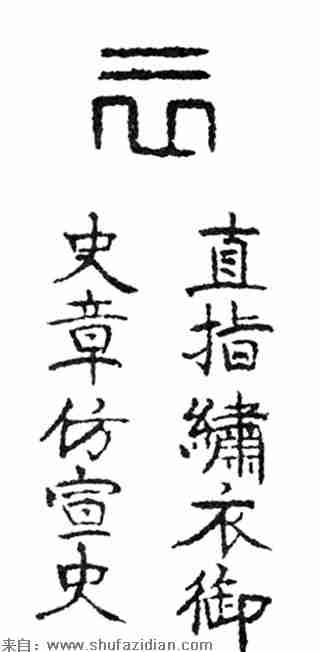 直指繡衣御
史章仿宣史
来自：www.shufazidian.com